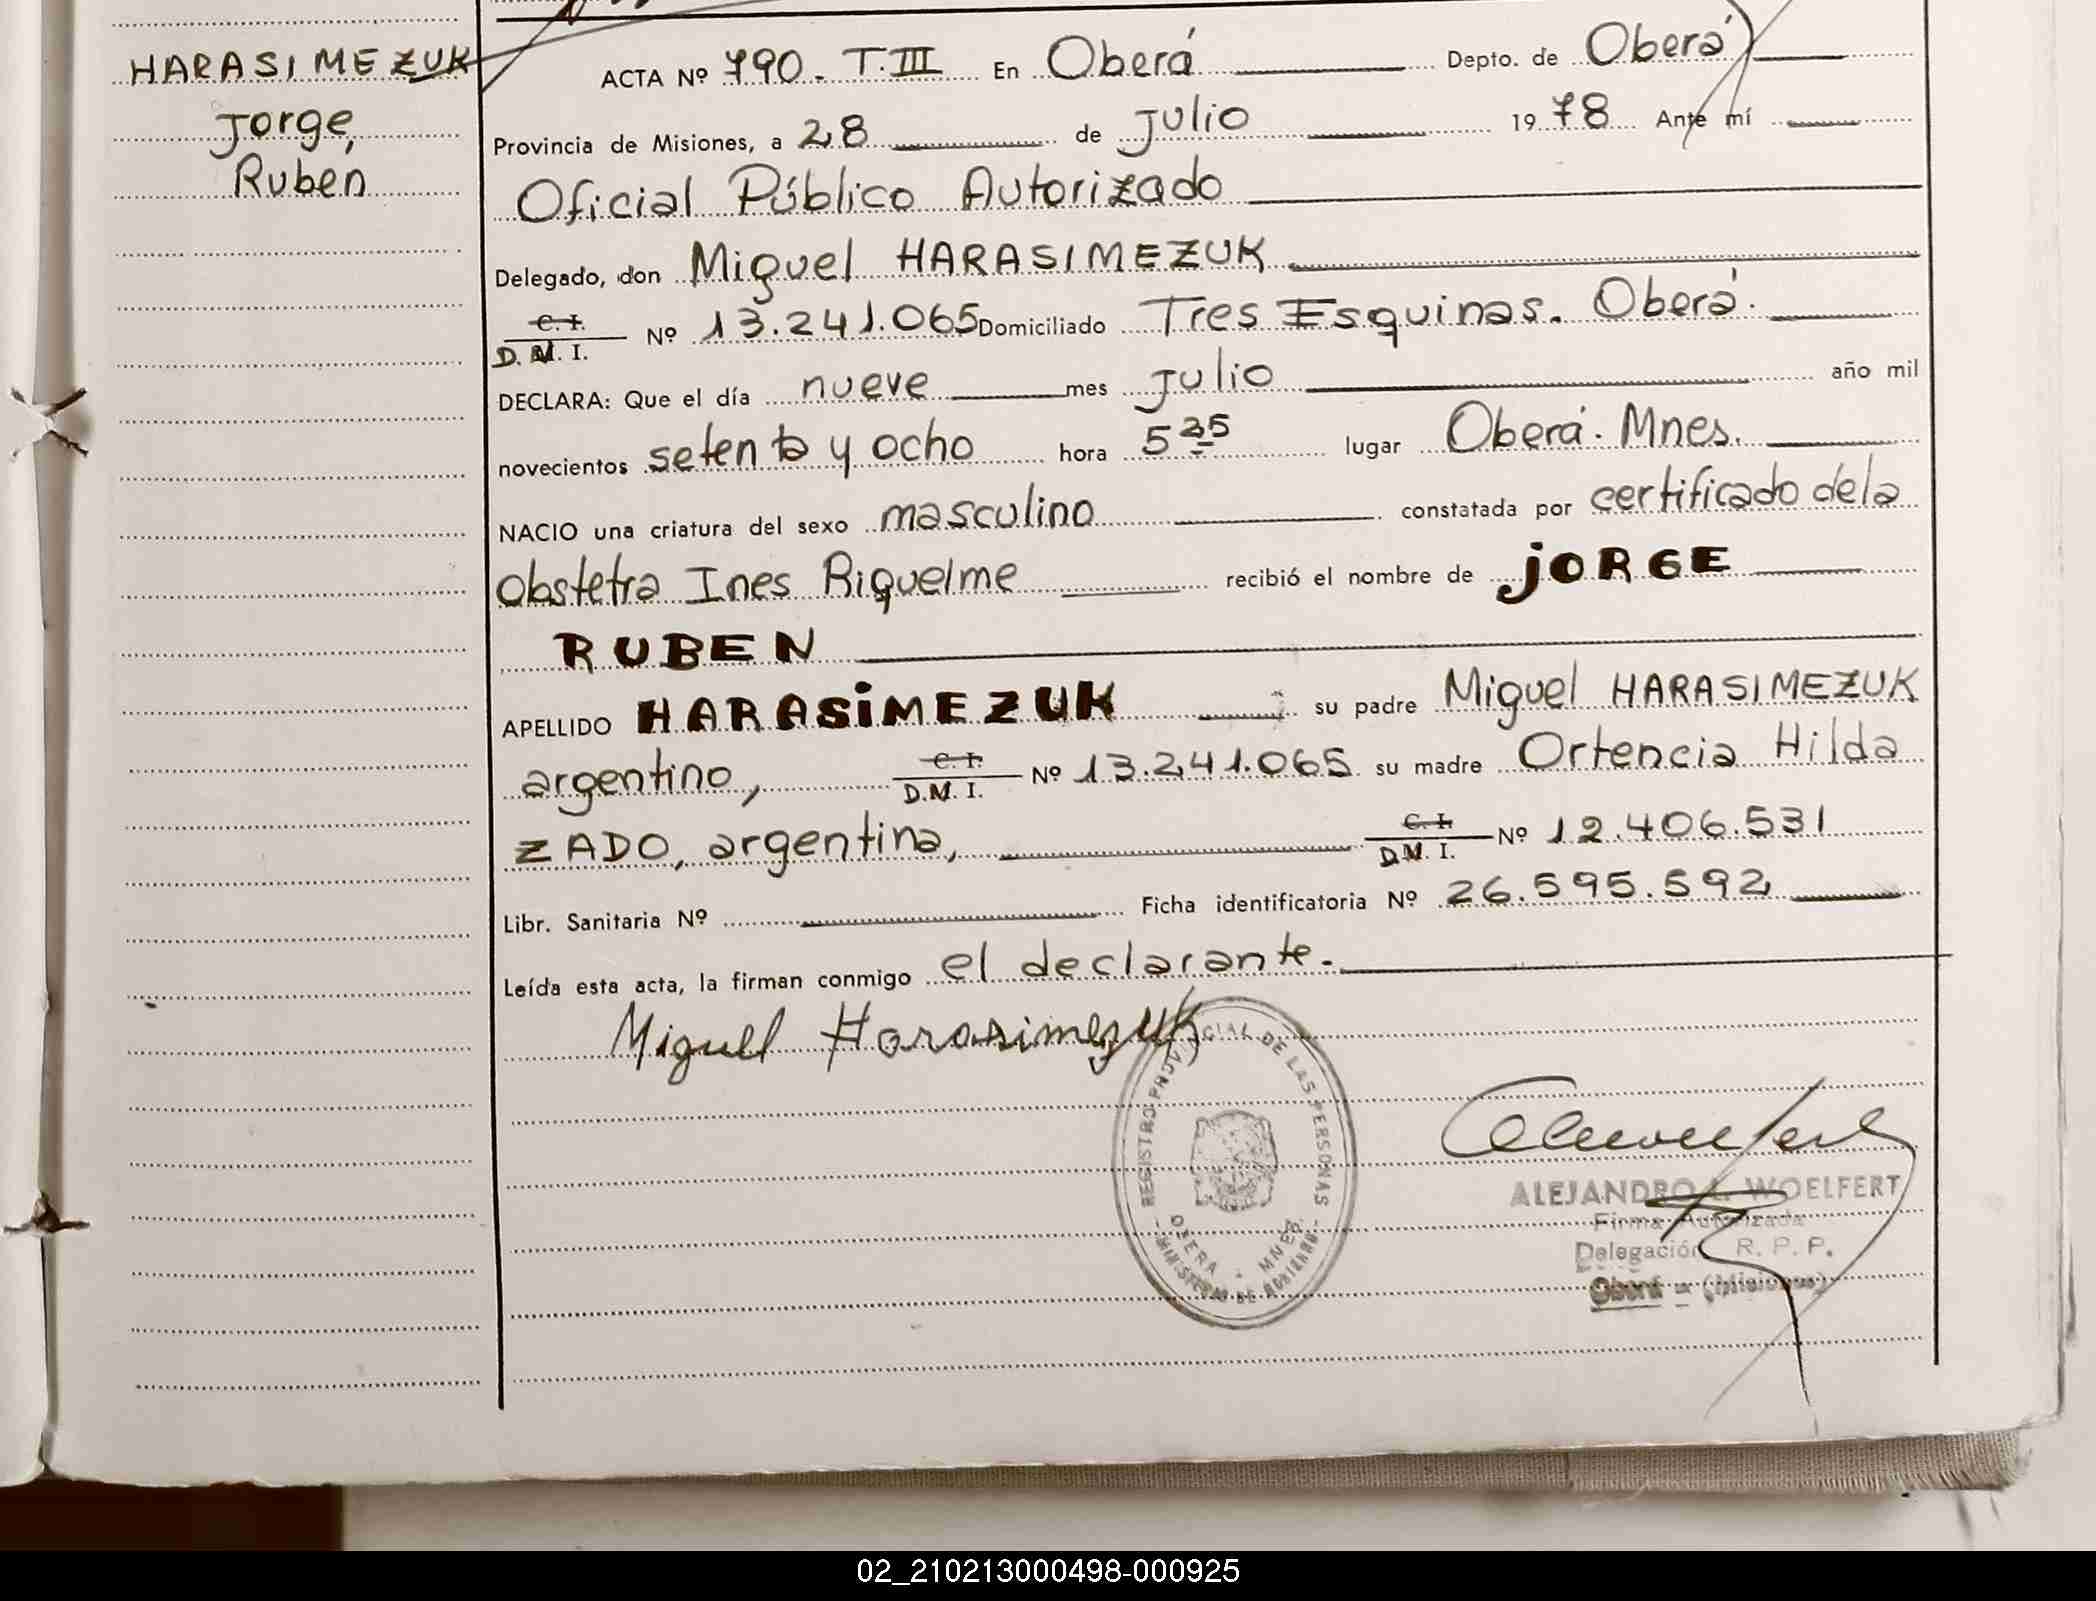 HARASIMEZUK
Jorge,
Rubén
ACTA Nº 790. T.III En Oberá Depto. de Oberá
Provincia de Misiones, a 28 de Julio 1978 Ante mí
Oficial Público Autorizado
Delegado, don Miguel HARASIMEZUK
C. I.
D. M. I. Nº 13.241.065 Domiciliado Tres Esquinas. Oberá.
DECLARA: Que el día nueve mes Julio año mil
novecientos setenta y ocho hora 5 35 lugar Oberá. Mnes.
NACIO una criatura del sexo masculino constatada por certificado dela
Obstetra Ines Riquelme recibió el nombre de JORGE
RUBEN
APELLIDO HARASIMEZUK su padre Miguel HARASIMEZUK
argentino, C. I. D.M. I. Nº 13.241.065 su madre Ortencia Hilda
ZADO, argentina, C. I. D.M. I. Nº 12.406.531
Libr. Sanitaria Nº Ficha identificatoria Nº 26.595.592
Leída esta acta, la firman conmigo el declarante.
Miguel Harasimezuk
REGISTRO PROVINCIAL DE LAS PERSONAS
OBERA - MNES.
MINISTERIO DE GOBIERNO
ALEJANDRO L. WOELFERT
Firma Autorizada
Delegación R. P. P.
Oberá - (Misiones)
02_210213000498-000925